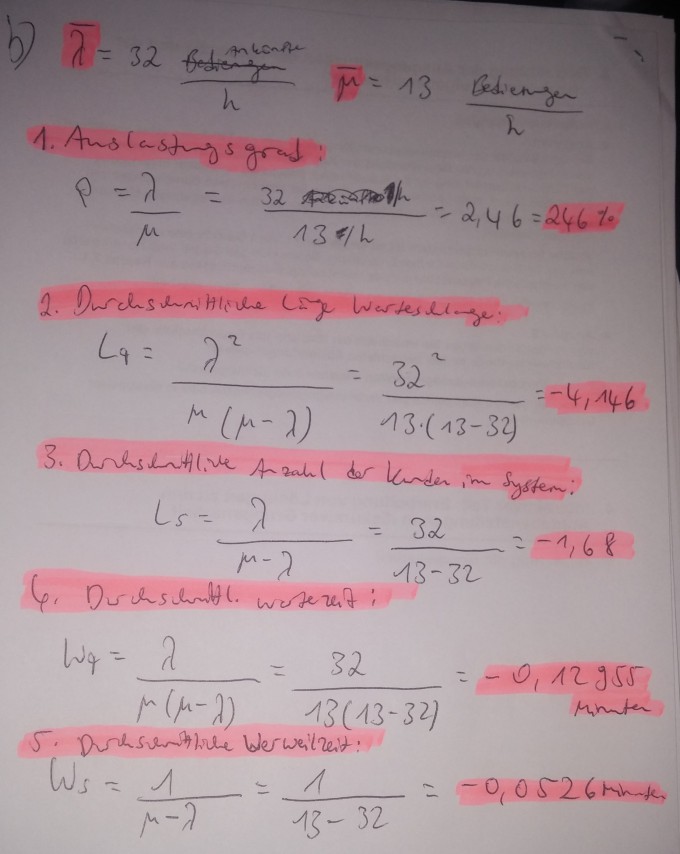 b) λ̄ = 32 Ankünfte/h μ̄ = 13 Bedienungen/h
1. Auslastungsgrad:
ρ = λ/μ = 32 1/h / 13 1/h = 2,46 = 246 %
2. Durchschnittliche Länge Warteschlange:
Lq = λ² / μ(μ-λ) = 32² / 13·(13-32) = -4,146
3. Durchschnittliche Anzahl der Kunden im System:
Ls = λ / μ-λ = 32 / 13-32 = -1,68
4. Durchschnittl. Wartezeit:
Wq = λ / μ(μ-λ) = 32 / 13(13-32) = -0,12955
Minuten
5. Durchschnittliche Verweilzeit:
Ws = 1 / μ-λ = 1 / 13-32 = -0,0526 Minuten